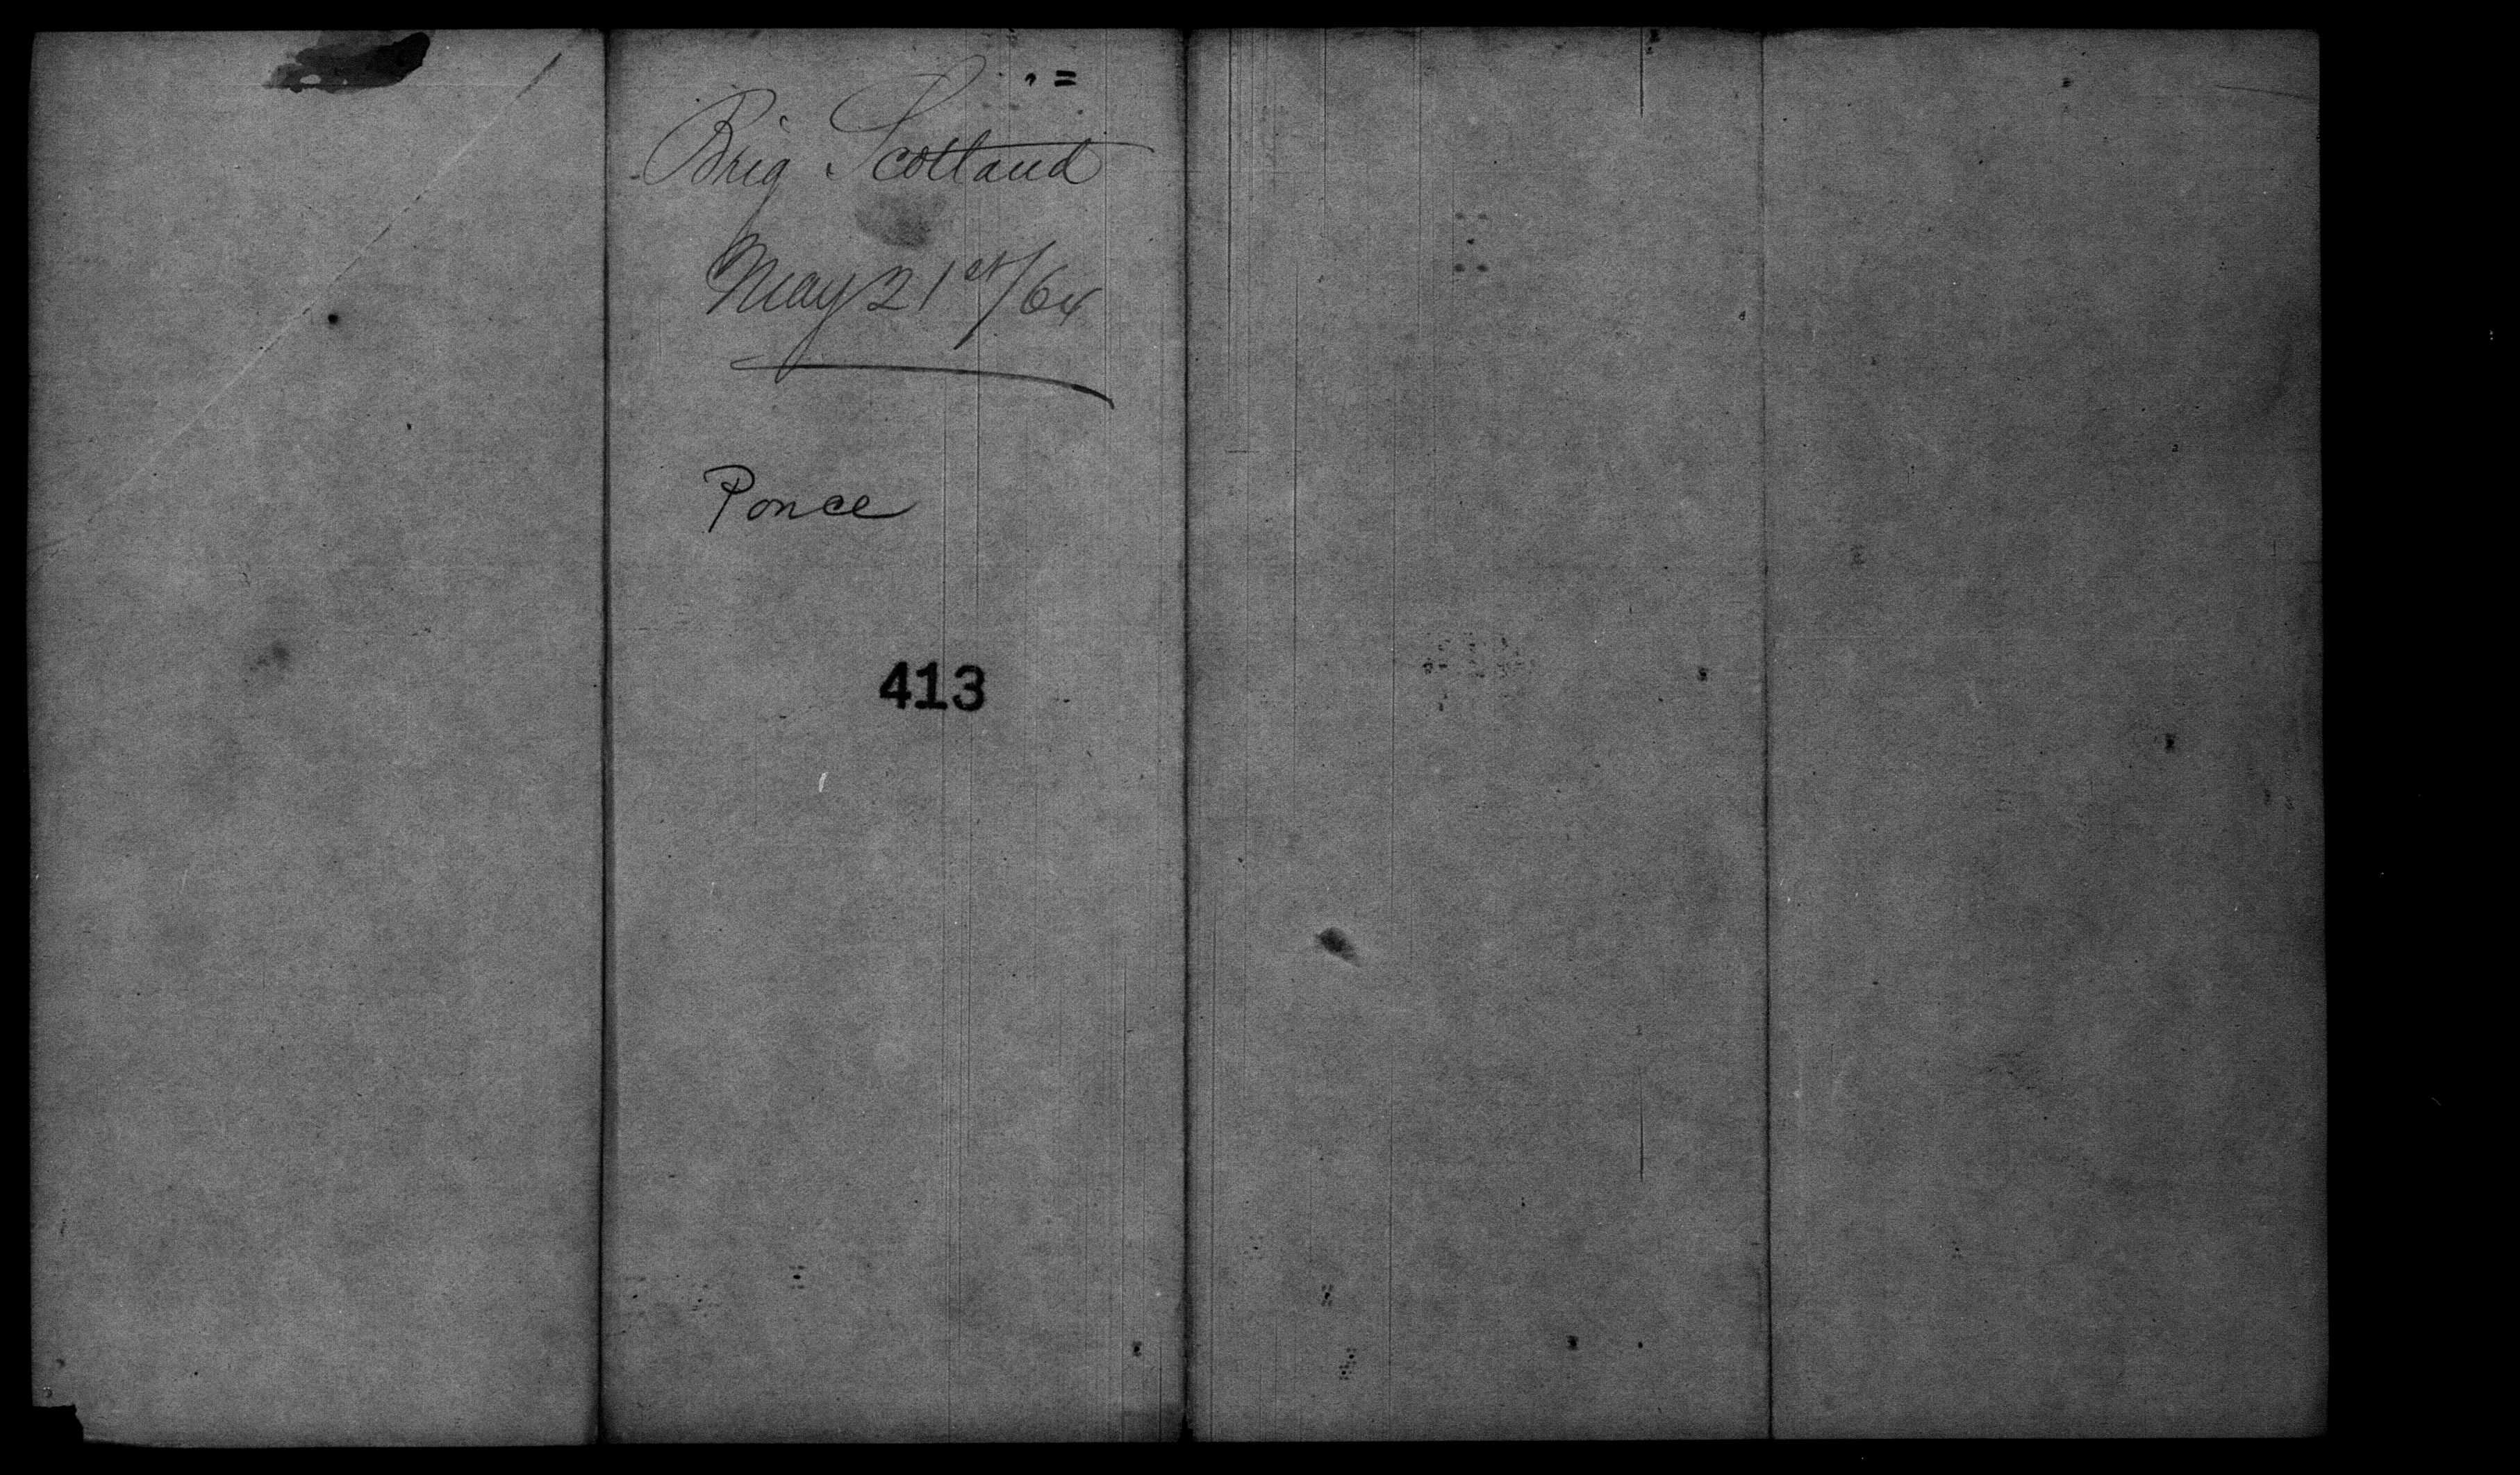 Brig Scotland
May 21st/64
Ponce
413